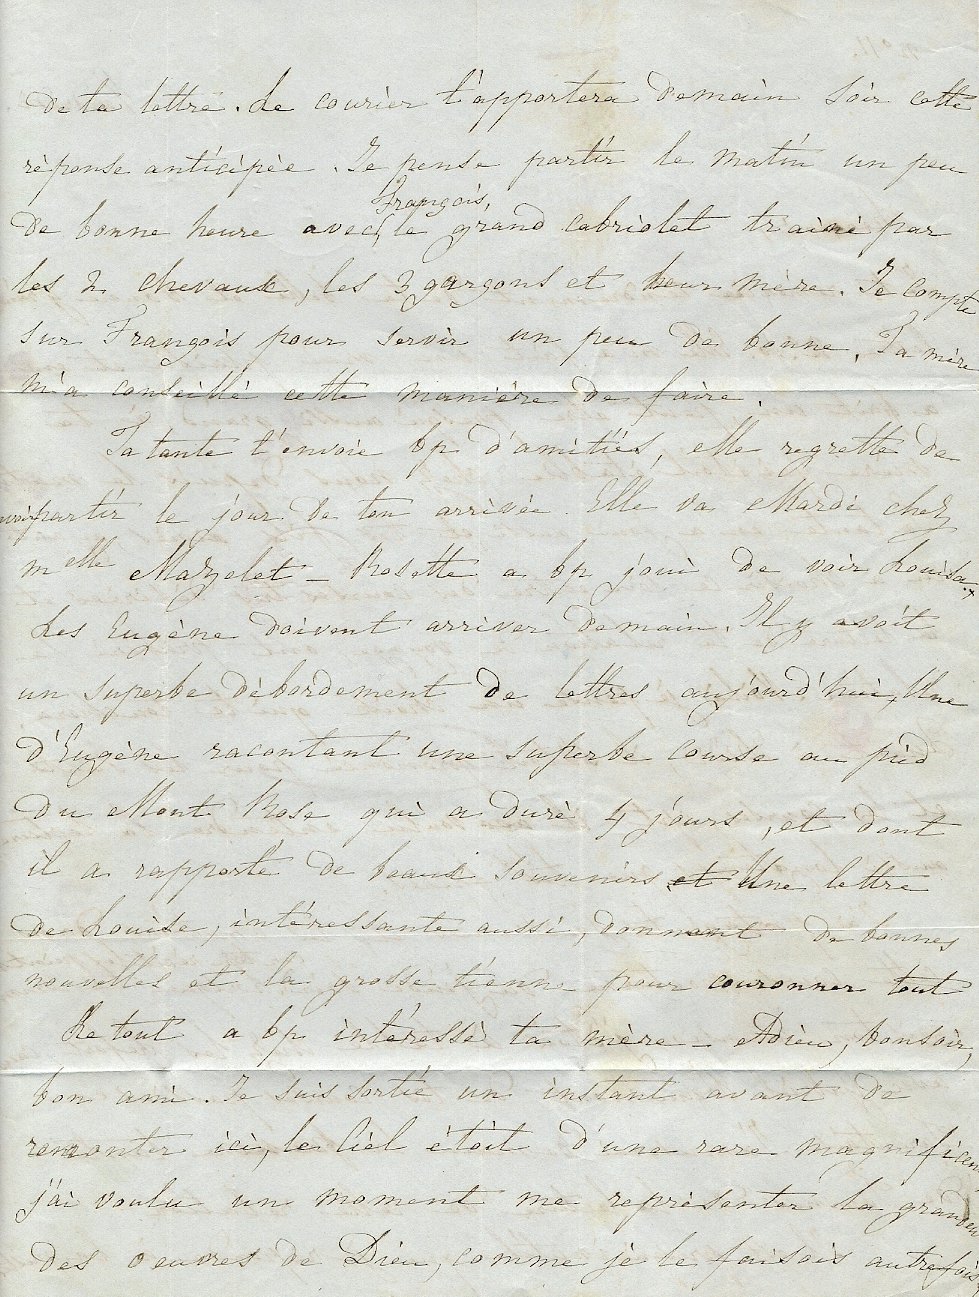 de ta lettre. Le courier t'apportera demain soir cette
réponse anticipée. Je pense partir le matin un peu
François,
de bonne heure avec, le grand cabriolet trainé par
les 2 chevaux, les 3 garçons et leur mère. Je compte
sur François pour servir un peu de bonne. Ta mère
m'a conseillé cette manière de faire.
Ta tante t'envoie bp d'amitiés, elle regrette de
partir le jour de ton arrivée. Elle va Mardi chez
Melle Mazelet _ Rosette a bp joui de voir Louisa.x
Les Eugène doivent arriver demain. Il y avoit
un superbe débordement de lettres aujourd'hui, Une
d'Eugène racontant une superbe course au pied
du Mont Rose qui a duré 4 jours, et dont
il a rapporté de beaux souvenirs et Une lettre
de Louise, intéressante aussi, donnant de bonnes
nouvelles et la grosse tienne pour couronner tout
Le tout a bp intéressé ta mère _ Adieu, bonsoir,
bon ami. Je suis sortie un instant avant de
remonter ici, le Ciel étoit d'une rare magnificen
j'ai voulu un moment me représenter la grandeur
des oeuvres de Dieu, comme je le faisois autrefois